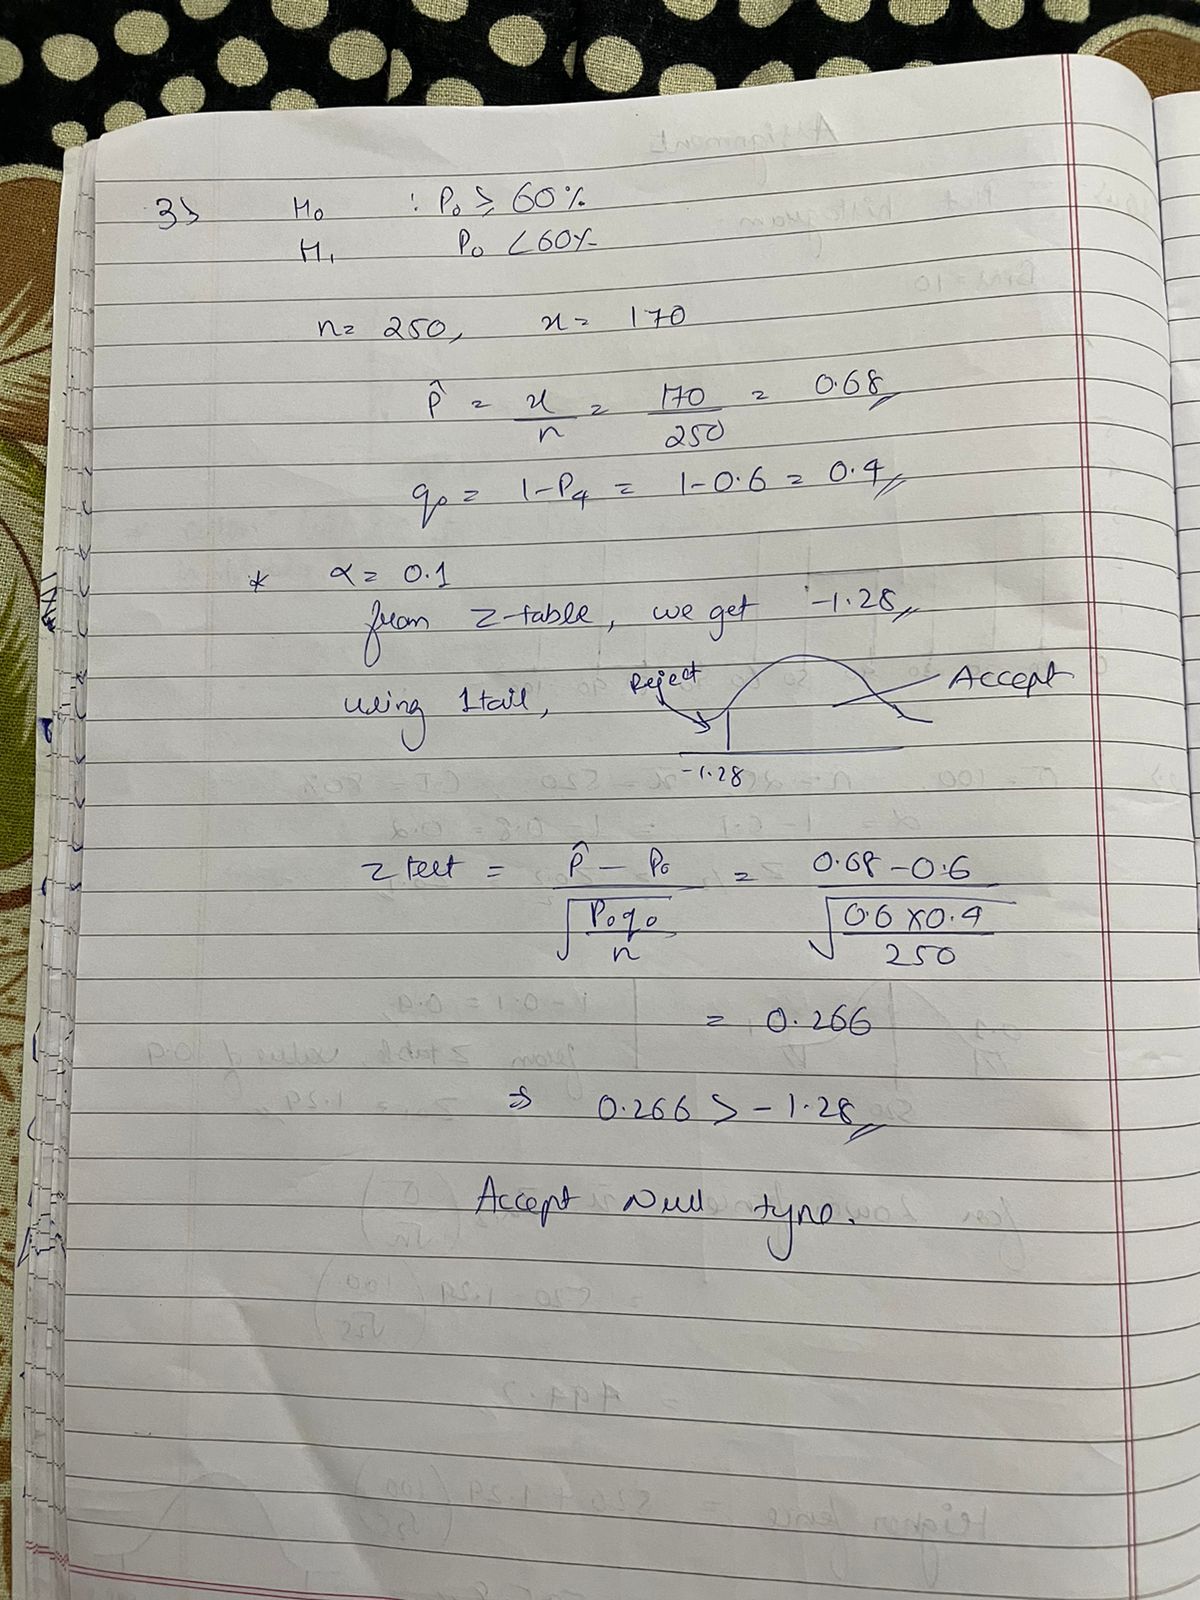 3) H₀ : P₀ ≥ 60%
H₁ P₀ < 60%
n = 250, x = 170
p̂ = x/n = 170/250 = 0.68
q₀ = 1-P₄ = 1-0.6 = 0.4
* α = 0.1
from z-table, we get -1.28
using 1 tail,
Reject
Accept
-1.28
z test = (p̂ - P₀)/√(P₀q₀/n) = (0.68 - 0.6)/√(0.6 × 0.4/250)
= 0.266
⇒ 0.266 > -1.28
Accept Null typo.